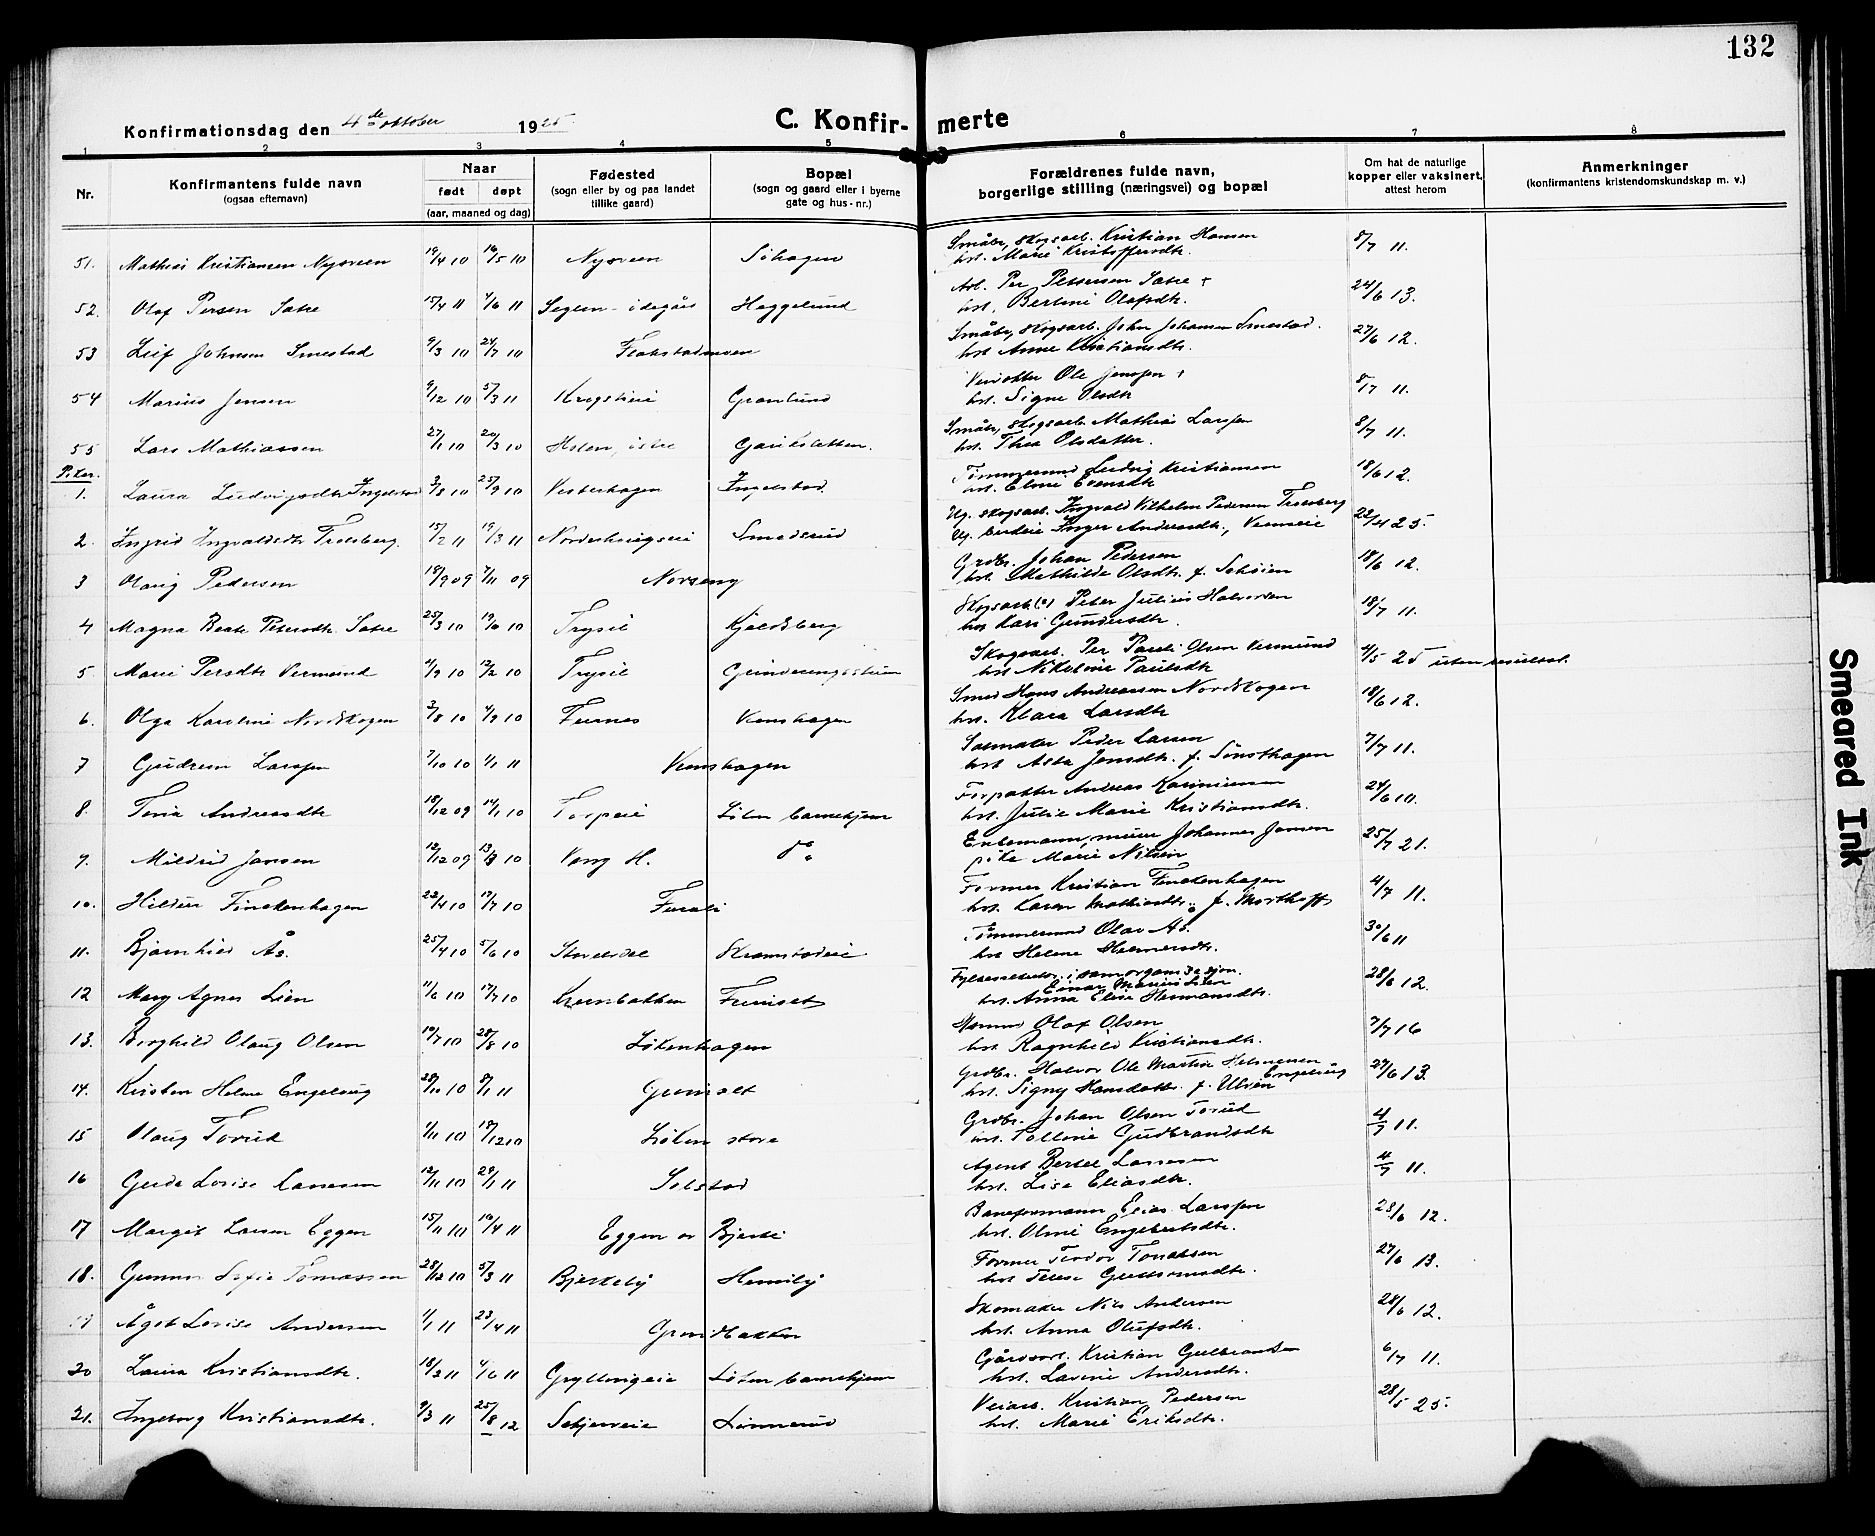 132
Konfirmationsdag den 4de oktober 1925
C. Konfir- merte
1 2 3 4 5 6 7 8
Nr.
Konfirmantens fulde navn
(ogsaa efternavn)
Naar
født døpt
(aar, maaned og dag)
Fødested
(sogn eller by og paa landet
tillike gaard)
Bopæl
(sogn og gaard eller i byerne
gate og hus-nr.)
Forældrenes fulde navn,
borgerlige stilling (næringsvei) og bopæl
Om hat de naturlige
kopper eller vaksinert,
attest herom
Anmerkninger
(konfirmantens kristendomskundskap m. v.)
51. Mathias Kristiansen Nysveen 19/4 10 19/5 10 Nysveen Søhagen Småbr, skogsarb. Kristian Hansen 8/7 11.
hst. Marie Kristoffersdtr.
52. Olaf Persen Sætre 15/4 11 4/6 11 Heggelund Arb. Per Pettersen Sætre + 24/6 13.
hst. Bertine Olafsdtr.
53 Leif Johnsen Smestad 9/3 10 24/7 10 Småbr, skogsarb. John Johansen Smestad. 27/6 12.
hst. Anne Kristiansdtr.
54 Marius Jensen 9/12 10 5/3 11 Grønlund Ole Jenssen + 8/7 11.
hst. Signe Olsdtr
55 Lars Mathiassen 27/1 10 20/3 10 Holen, østre Småbr, skogsarb. Mathias Larssen 8/7 11.
hst. Thea Olsdatter.
Piker.
1. Laura Ludvigsdtr Ingelstad 3/8 10 25/9 10 Vesterhagen Ingelstad Tømmermand Ludvig Kristiansen 18/6 12.
hst. Eline Evensdtr
2. Ingrid Ingvaldsdtr Trosberg. 15/2 11 19/3 11 Smedsrud Ug. skogsarb. Ingvald Vilhelm Pedersen Trosberg 22/4 25.
Ug. Inger Andreasdtr.,
3 Olaug Pedersen 18/9 09 7/11 09 Norseng Grdbr. Johan Pedersen 18/6 12.
hst. Mathilde Olsdtr. f. Schøien
4 Magna Beate Petersdtr Sætre 25/3 10 19/6 10 Trysil Kjeldsberg Skogsarb. Peter Julius Halvorsen 18/7 11.
hst Kari Gundersdtr.
5 Marie Persdtr Vermund 4/9 10 12/2 10 Trysil Skogsarb. Per Pauli Olsen Vermund 4/5 25 uten resultat.
hst Nikoline Paulsdtr
6. Olga Karoline Nordskogen 3/8 10 4/9 10 Furnes Venshagen Smed Hans Andreassen Nordskogen 18/6 12.
hst. Klara Larsdtr
7 Gudrun Larssen 7/10 10 1/1 11 Venshagen Salmaker Peder Larsen 7/7 11.
hst Asta Jensdtr. f. Sønsthagen
8. Tora Andreasdtr 18/12 09 14/1 10 Torpeie Løten barnehjem Forpakter Andreas Karinius 24/6 10.
hst. Julie Marie Kristiansdtr.
9. Mildrid Jansen 12/12 09 13/3 10 Vang H. do Enkemann, murer Johannes Jansen 25/7 21.
pike Marie Nilsen
10. Hildur Finckenhagen 22/4 10 17/7 10 Furuli Former Kristian Finckenhagen 4/7 11.
hst. Karen Mathiasdtr. f. Morthoff
11. Bjørnhild Ås. 25/4 10 5/6 10 Tømmermand Olav Ås. 30/6 11
hst Helene Helmersdtr.
12 Mary Agnes Lien 11/6 10 17/7 10 Krembakken Furuset Fylkessekretær i samorganisasjon. 28/6 12.
Einar Marius Lien
hst. Anna Elise Hermansdtr.
13. Borghild Olaug Olsen 19/7 10 28/8 10 Løkenhagen Olaf Olsen 7/7 16
hst. Ragnhild Kristiansdtr.
14. Kirsten Helene Engelaug 28/11 10 8/1 11 Grdbr. Halvor Ole Martin Engelaug 27/6 13.
hst. Signy Hansdatter f. Ulven
15 Olaug Torud 1/11 10 18/12 10 Løken store Grdbr. Johan Olsen Torud 4/7 11.
hst. Palline Gudbrandsdtr
16 Gerda Lovise Larssen 12/11 10 29/1 11 Solstad Agent Bertel Larssen 4/7 11.
hst. Lise Eliasdtr.
17 Margit Larsen Eggen 15/11 10 19/4 11 Eggen av Bjerke Baneformann Elias Larssen 23/6 12.
hst. Oline Engebretsdtr.
18. Gunnor Sofie Tomassen 28/12 10 5/3 11 Bjerkeby Heimly Former Teodor Tomassen 27/6 13.
hst. Terese Guttormsdtr.
19 Ågot Lovise Andersen 1/1 11 23/4 11 Grønsbakken Skomaker Nils Andersen 28/6 12.
hst. Anna Olufsdtr.
20 Laura Kristiansdtr. 18/2 11 4/6 11 Gryllingeie Løten barnehjem Gårdsarb. Kristian Gulbrandsen 6/7 11.
hst. Lovine Andersdtr.
21. Ingeborg Kristiansdtr. 9/3 11 25/8 12 Skjerveie Lønnerud Veiarb. Kristian Pedersen 28/5 25.
hst. Marie Eriksdtr.
Smeared Ink